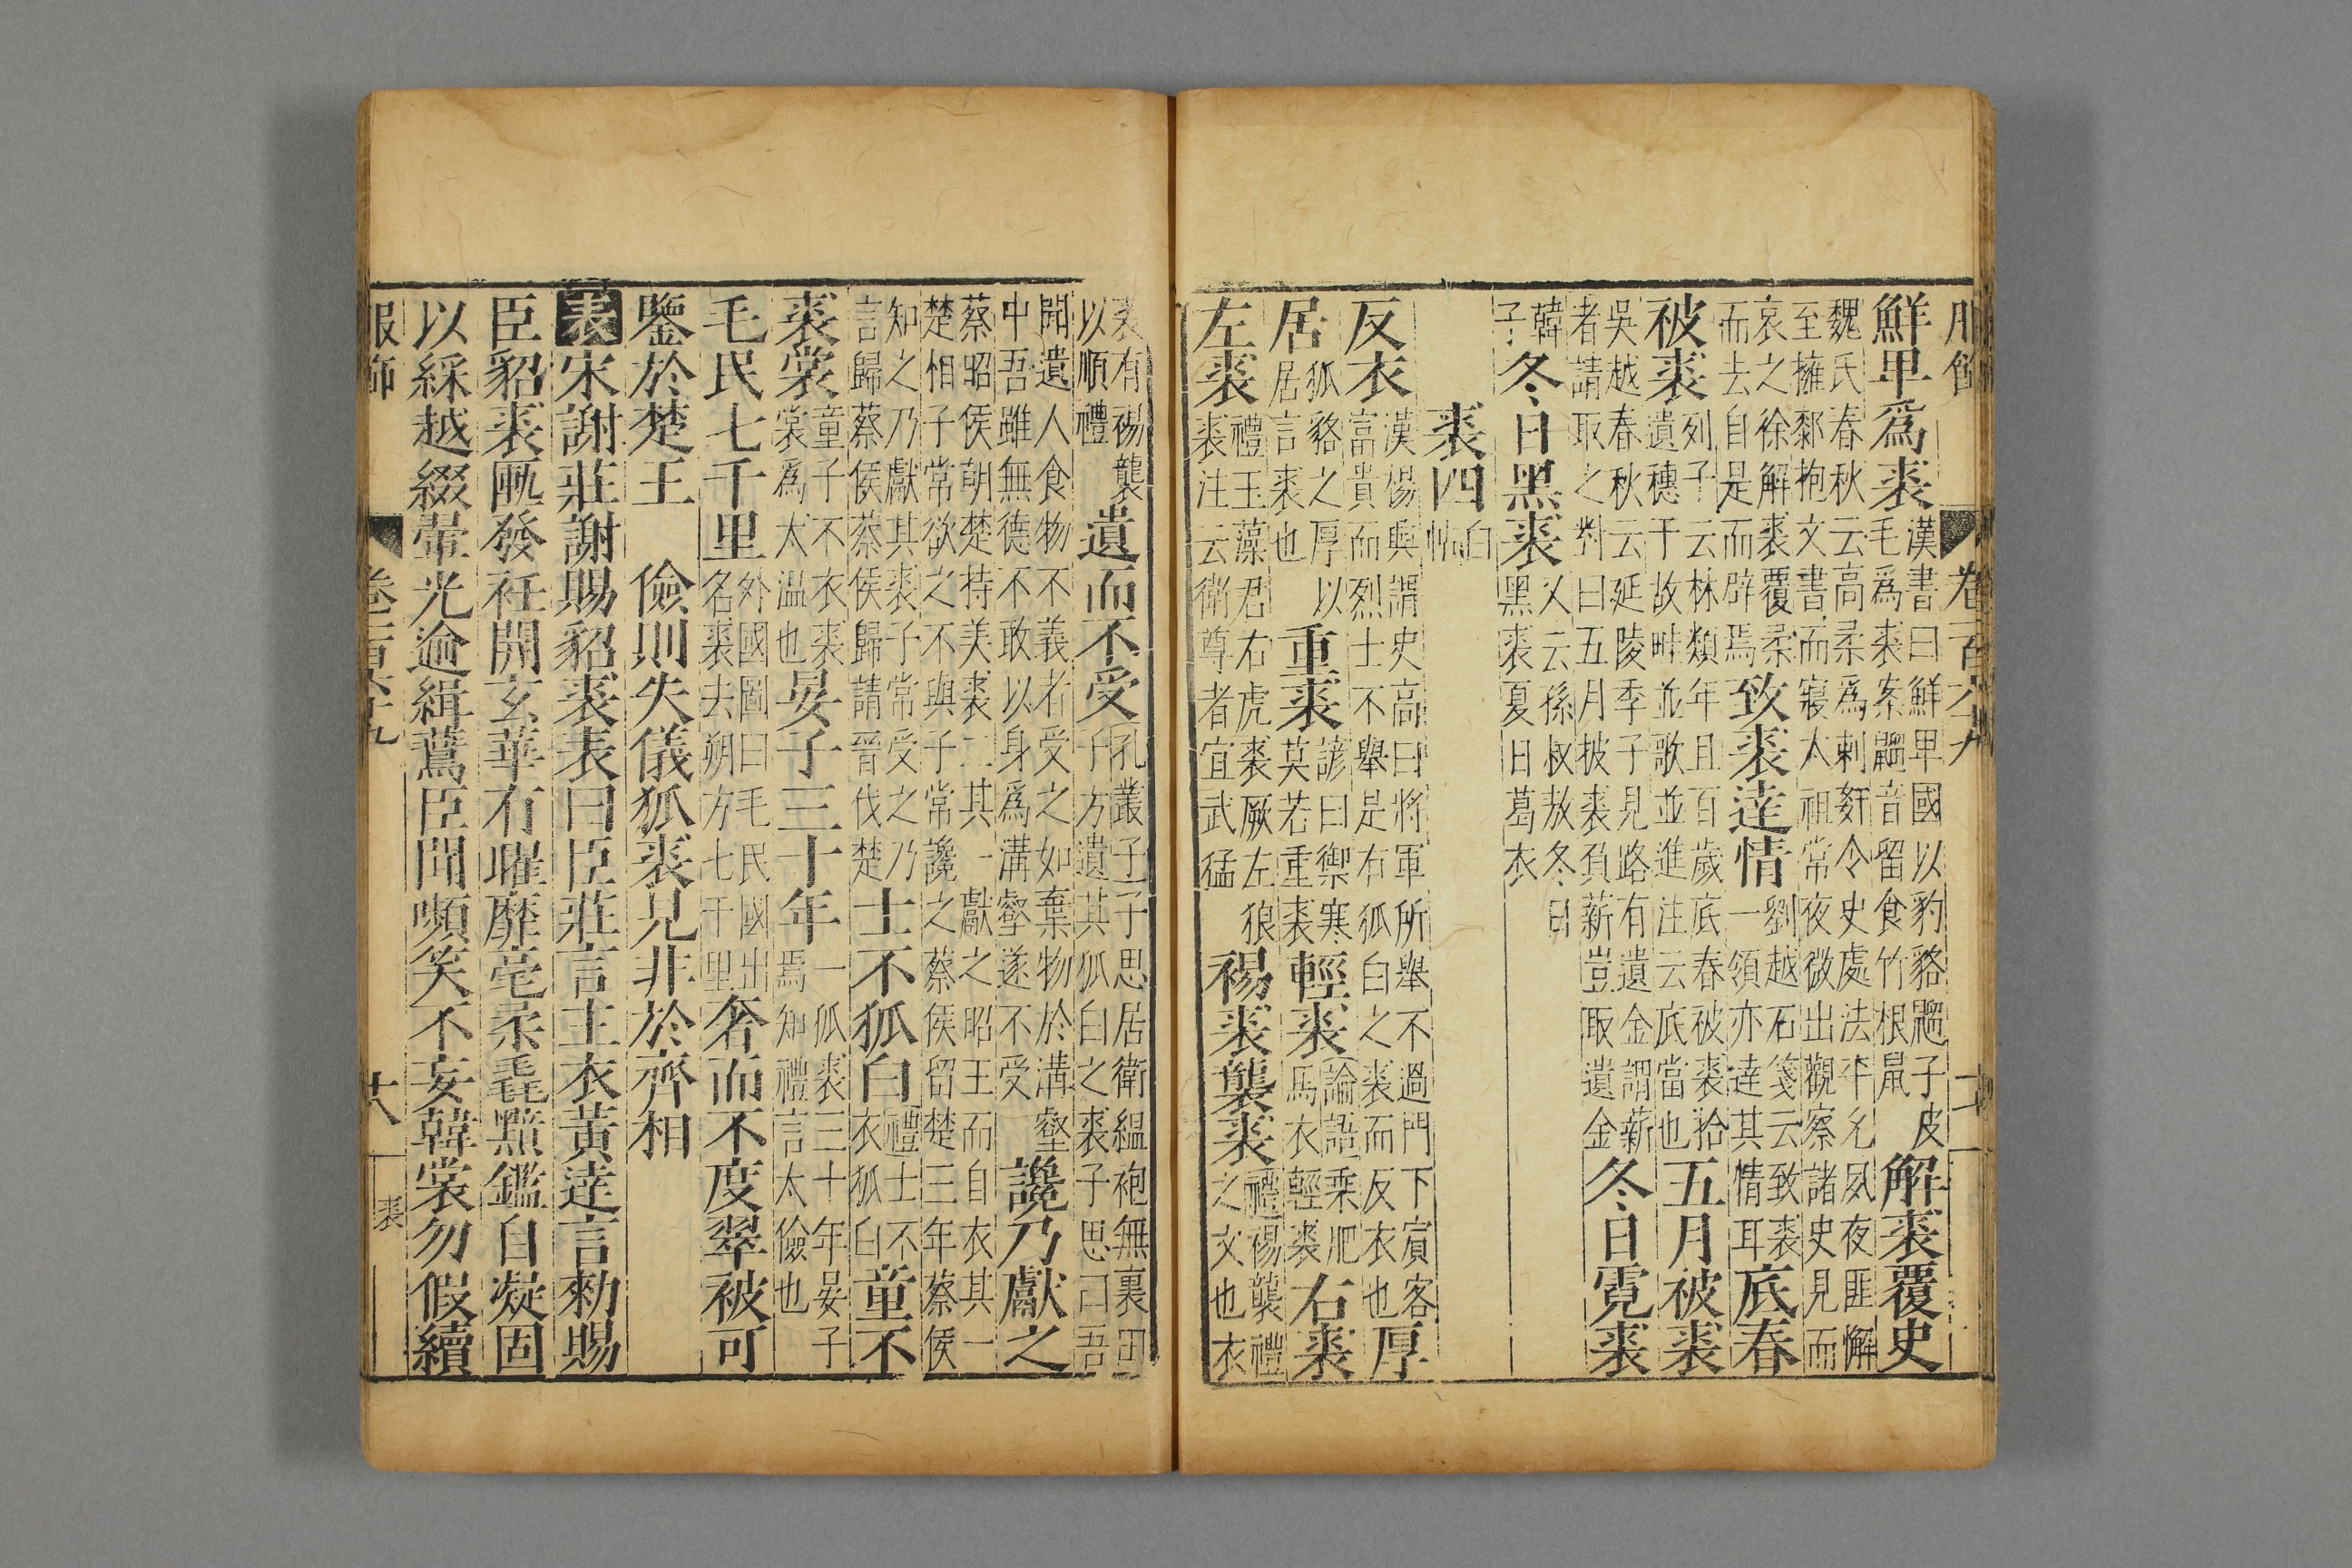 服飾 卷一百六十九 十七
鮮卑為裘 漢書曰鮮卑國以豹貉䶉子皮毛為裘案䶉音留食竹根鼠 解裘覆史
魏氏春秋云高柔為刺奸令史處法平允夙夜匪懈至擁黎抱文書而寢太祖常夜微出觀察諸史見而
哀之徐解裘覆柔而去自是而辟焉 致裘達情 劉越石箋云致裘一領亦達其情耳 底春
被裘 列子云林類年且百歲底春被裘拾遺穗于故畦並歌並進注云底當也 五月被裘
吳越春秋云延陵季子見路有遺金謂薪者請取之對曰五月披裘負薪豈取遺金 冬日霓裘
韓子 冬日黑裘 又云孫叔敖冬日黑裘夏日葛衣
裘四 白帖
反衣 漢楊興謂史高曰將軍所舉不過門下賓客富貴而烈士不舉是右狐白之裘而反衣也 厚
居 狐貉之厚以居言裘也 重裘 諺曰禦寒莫若重裘 輕裘 論語乘肥馬衣輕裘 右裘
左裘 禮玉藻君右虎裘厥左狼裘注云衛尊者宜武猛 裼裘襲裘 禮裼襲禮之文也衣
裘有裼襲以順禮 遺而不受 孔叢子子思居衛縕袍無裏田子方遺其狐白之裘子思曰吾
聞遺人食物不義者受之如棄物於溝壑中吾雖無德不敢以身為溝壑遂不受 讒乃獻之
蔡昭侯朝楚持美裘二其一獻之昭王而自衣其一楚相子常欲之不與子常讒之蔡侯留楚三年蔡侯
知之乃獻其裘子常受之乃言歸蔡侯蔡侯歸請晉伐楚 士不狐白 禮士不衣狐白 童不
裘裳 童子不衣裘裳為太溫也 晏子三十年 一狐裘三十年晏子焉知禮言太儉也
毛民七千里 外國圖曰毛民國出名裘去朔方七千里 奢而不度翠被可
鑒於楚王 儉則失儀狐裘見非於齊相
表宋謝莊謝賜貂裘表曰臣莊言主衣黃達言勑賜
臣貂裘匭發衽開玄華有曜靡毫柔毳黯鑑自凝固
以綵越綴暈光逾緝蔿臣聞嚬笑不妄韓裳勿假續
服飾 卷一百六十九 十八 裘